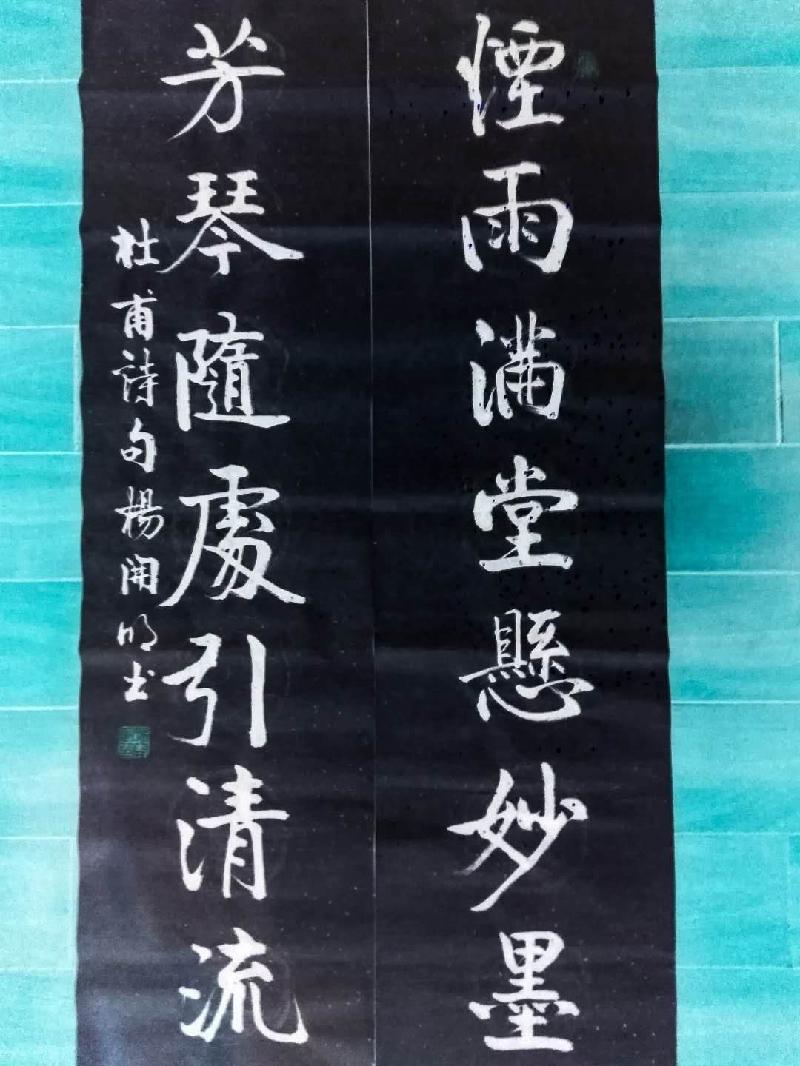 煙雨滿堂懸妙墨
芳琴隨處引清流
杜甫詩句楊開明书